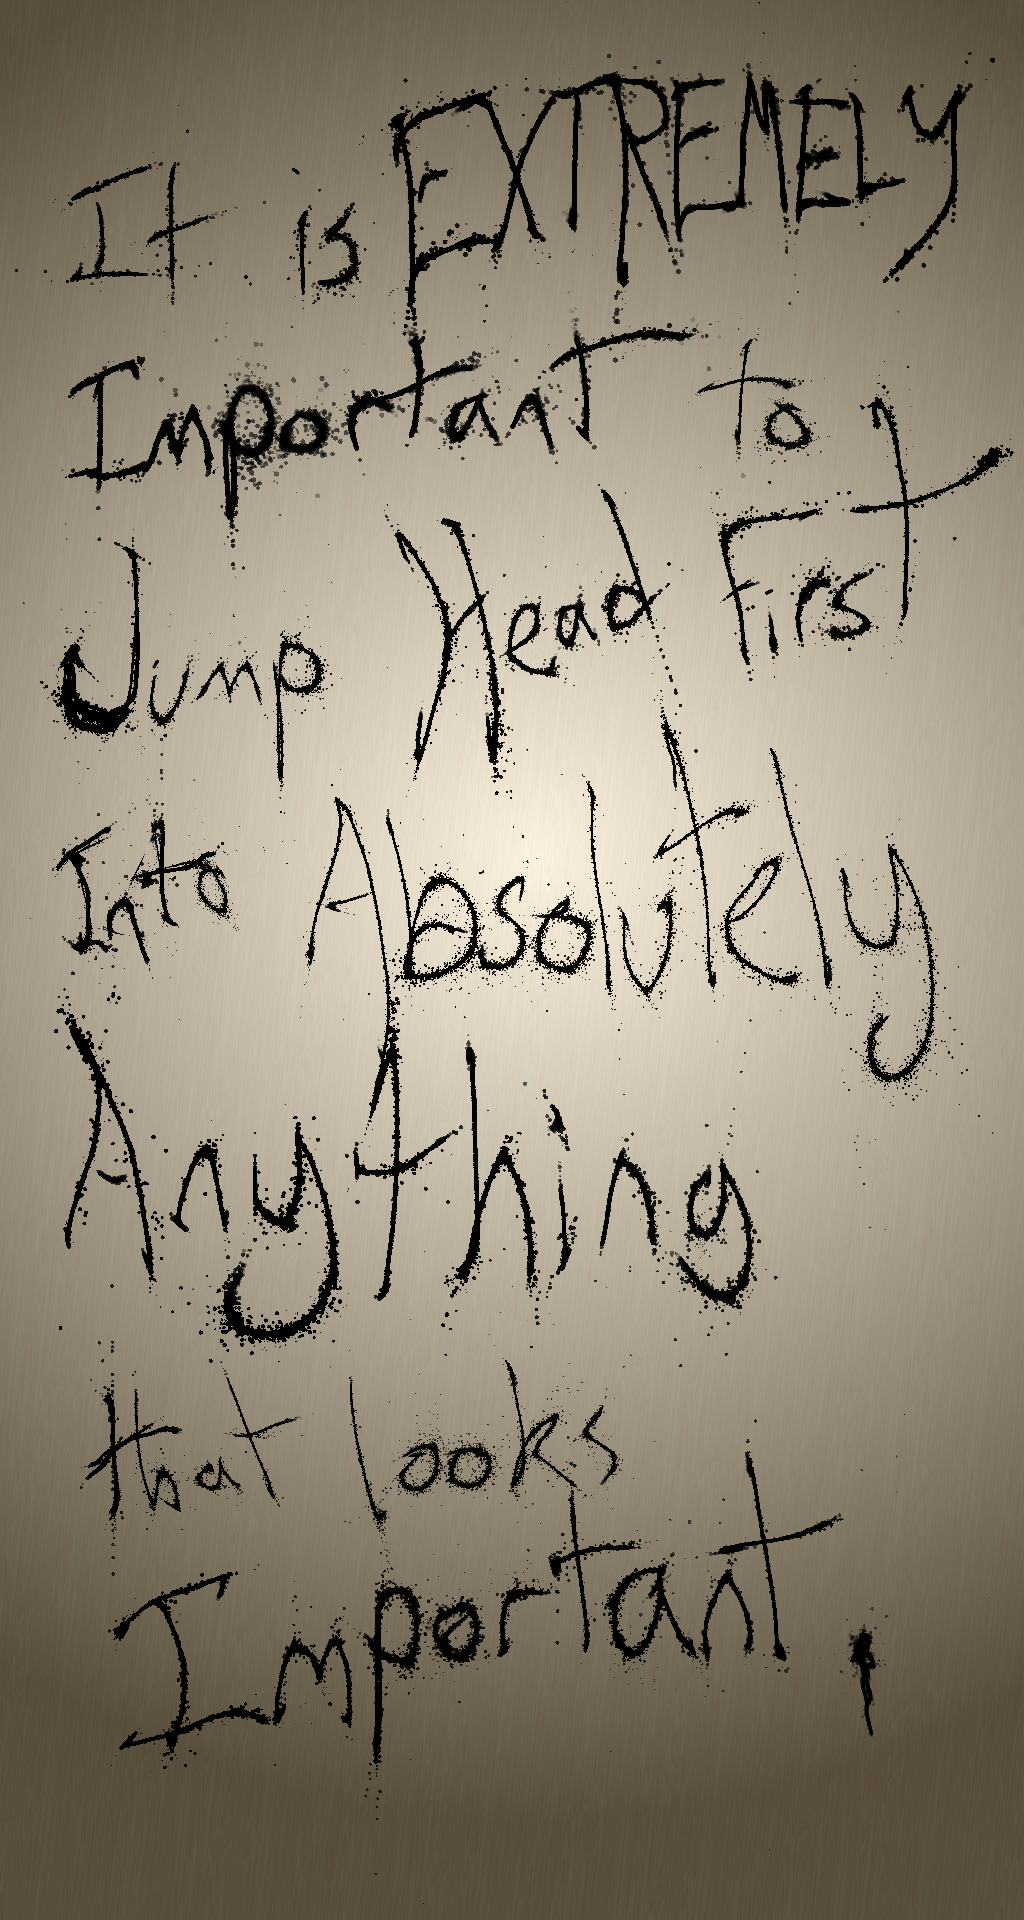 It is EXTREMELY
Important to
Jump Head First
Into Absolutely
Anything
that looks
Important.